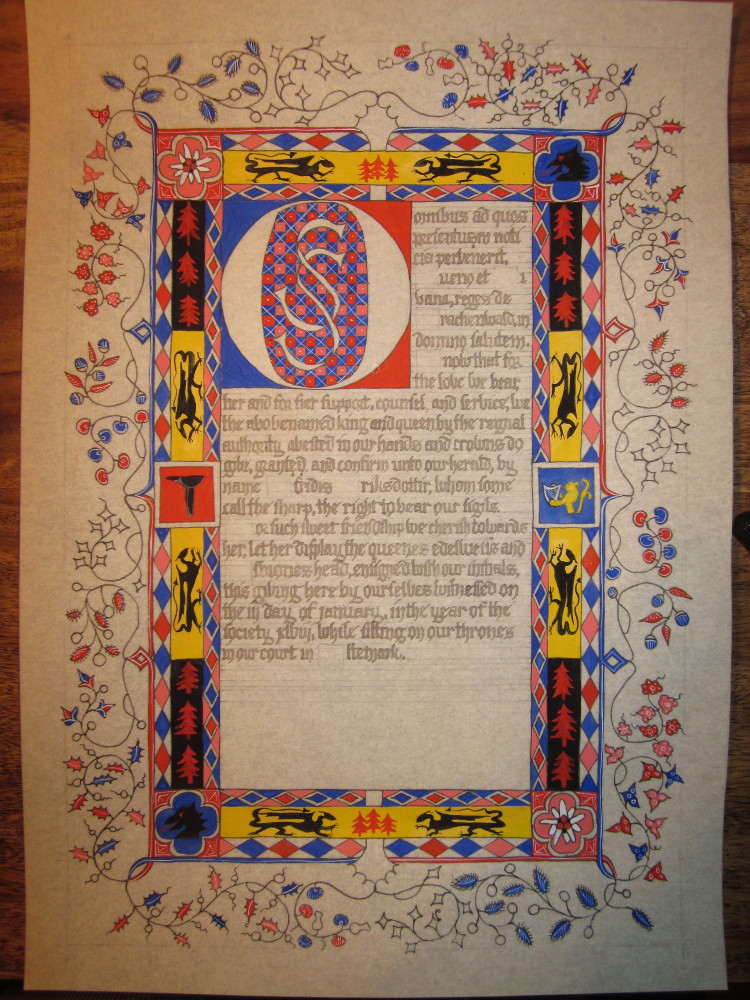 omnibus ad quos
presentium noti
cia pervenerit,
ueno et
vana, reges de
rachenwald, in
domino salutem.
now that for
the love we bear
her and for her support, counsel, and service, we
the abovenamed king and queen by the regnal
authority abested in our hands and crowns do
give, granted, and confirm unto our herald, by
name tirdis riksdottir, whom some
call the sharp, the right to bear our sigils.
or such sweet friendship we cherish towards
her, let her display the queenes edelweiss and
head, ensigned with our initials,
this giving here by ourselves witnessed on
the iii day of january, in the year of the
society, while sitting on our thrones
in our court in